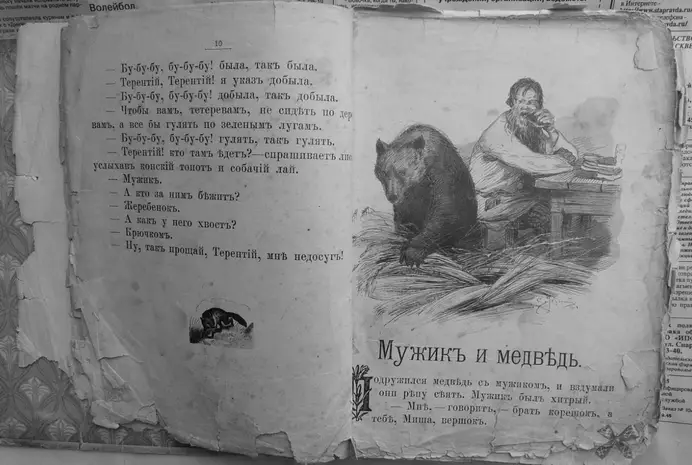 Волейбол.
10
— Бу-бу-бу, бу-бу-бу! была, такъ была.
— Терентій, Терентій! я указъ добыла.
— Бу-бу-бу, бу-бу-бу! добыла, такъ добыла.
— Чтобы вамъ, тетеревамъ, не сидѣть по
вамъ, а все бы гулять по зеленымъ лугамъ.
— Бу-бу-бу, бу-бу-бу! гулять, такъ гулять.
— Терентій! кто тамъ ѣдетъ?—спрашиваетъ
услыхавъ конскій топотъ и собачій лай.
— Мужикъ.
— А кто за нимъ бѣжитъ?
— Жеребенокъ.
— А какъ у него хвостъ?
— Крючкомъ.
— Ну, такъ прощай, Терентій, мнѣ недосугъ!
Мужикъ и медвѣдь.
Подружился медвѣдь съ мужикомъ, и вздумали
они рѣпу сѣять. Мужикъ былъ хитрый.
— Мнѣ,—говоритъ,—брать корешокъ, а
тебѣ, Миша, вершокъ.